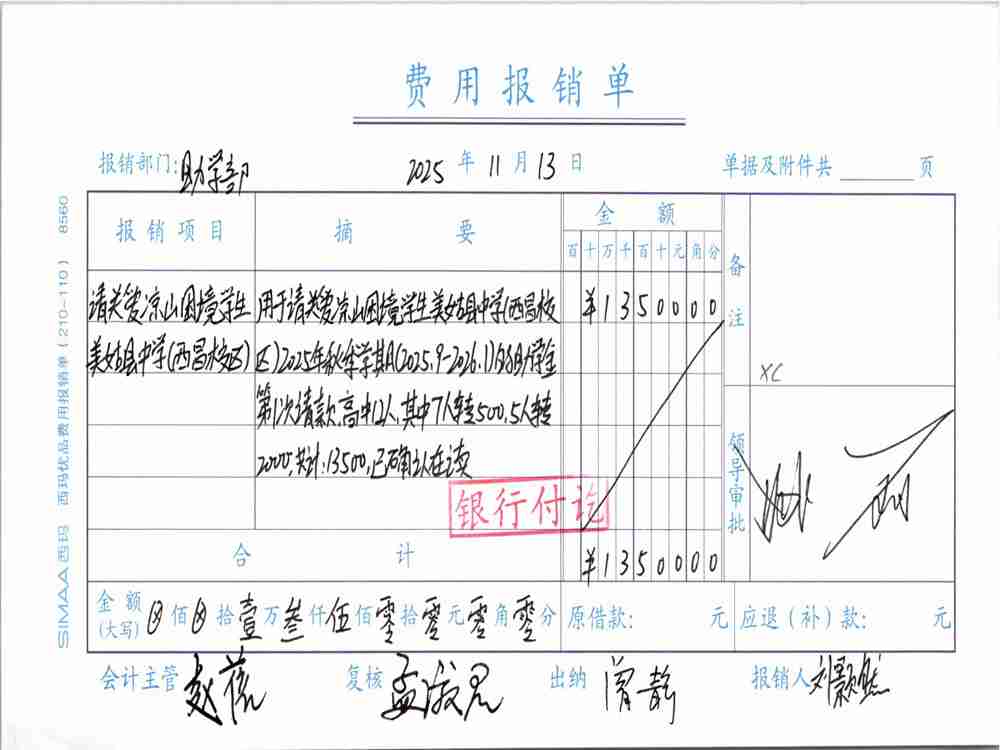 费用报销单
报销部门:助学部 2025年11月13日 单据及附件共 页
报销项目 摘要 金额 备注
百十万千百十元角分
请关爱凉山困境学生 用于请关爱凉山困境学生美姑县中学(西昌校 ¥1350000
美姑县中学(西昌校区) 区)2025年秋季学期(2025.9-2026.1)的助学金
第1次请款,高中12人,其中7人转500,5人转
2000,共计:13500,已确认在读
XC
领导审批
银行付讫
合计 ¥1350000
金额(大写) ⊗佰⊗拾壹万叁仟伍佰零拾零元零角零分 原借款: 元 应退(补)款: 元
会计主管 赵蓓 复核 孟淑思 出纳 曾静 报销人 刘颢然
SIMAA西玛 西玛优品费用报销单(210-110) 8560